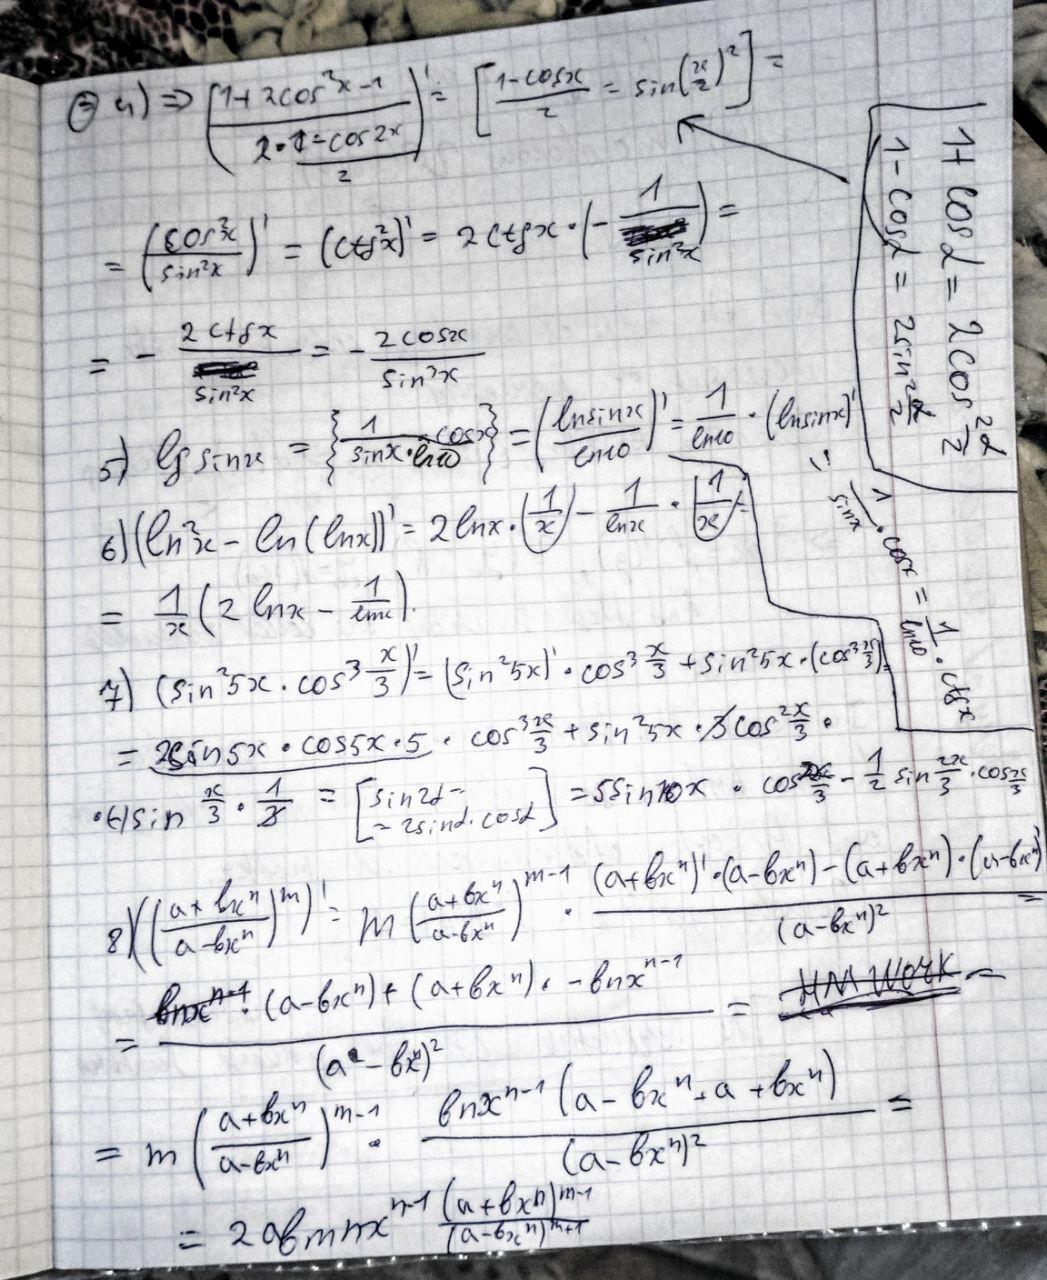 ③ 4) ⇒ ((1+2cos²x-1)/(2·(1-cos2x)/2))' = [(1-cosx)/2 = sin(x/2)²] =
= (cos²x/sin²x)' = (ctg²x)' = 2ctgx·(-1/sin²x) =
= - 2ctgx/sin²x = - 2cosx/sin³x
1+cosα = 2cos²α/2
1-cosα = 2sin²α/2
5) lg sinx = {1/(sinx·ln10) · cosx} = (lnsinx/ln10)' = 1/ln10 · (lnsinx)'
= 1/sinx · cosx = 1/ln10 · ctgx
6) (ln²x - ln(lnx))' = 2lnx·(1/x) - 1/lnx · (1/x) =
= 1/x (2lnx - 1/lnx).
7) (sin²5x · cos³x/3)' = (sin²5x)' · cos³x/3 + sin²5x·(cos³x/3)' =
= 2sin5x · cos5x · 5 · cos³x/3 + sin²5x · 3cos²x/3 ·
·(-)sin x/3 · 1/3 = [sin2α = = 2sinα·cosα] = 5sin10x · cos³x/3 - 1/2 sin 2x/3 · cos x/3
8) (((a+bxⁿ)/(a-bxⁿ))^m)' = m((a+bxⁿ)/(a-bxⁿ))^(m-1) · ((a+bxⁿ)'·(a-bxⁿ)-(a+bxⁿ)·(a-bxⁿ)')/(a-bxⁿ)² =
= (bnx^(n-1)·(a-bxⁿ)+(a+bxⁿ)·-bnx^(n-1))/(a-bxⁿ)² = HM WORK =
= m((a+bxⁿ)/(a-bxⁿ))^(m-1) · bnx^(n-1)(a-bxⁿ+a+bxⁿ)/(a-bxⁿ)² =
= 2abmnx^(n-1) (a+bxⁿ)^(m-1)/(a-bxⁿ)^(m+1)